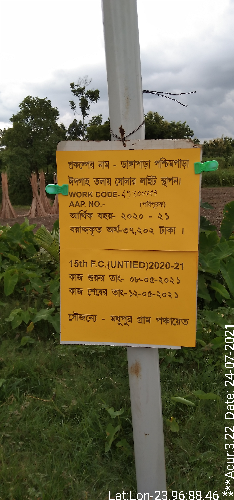 প্রকল্পের নাম - ডাঙ্গাপাড়া পশ্চিমপাড়া
ঈদগাহ তলায় সোলার লাইট স্থাপন।
WORK CODE-
AAP. NO.-
আর্থিক বছর- ২০২০ - ২১
বরাদ্দকৃত অর্থ-৩৭,২০২ টাকা ।
15th F.C.(UNTIED)2020-21
কাজ শুরুর তাং- ০৮-০৫-২০২১
কাজ শেষের তাং-১২-০৫-২০২১
সৌজন্যে - মধুপুর গ্রাম পঞ্চায়েত
Lat:Lon-23.96:88.46
***Acur:3.22 Date: 24-07-2021